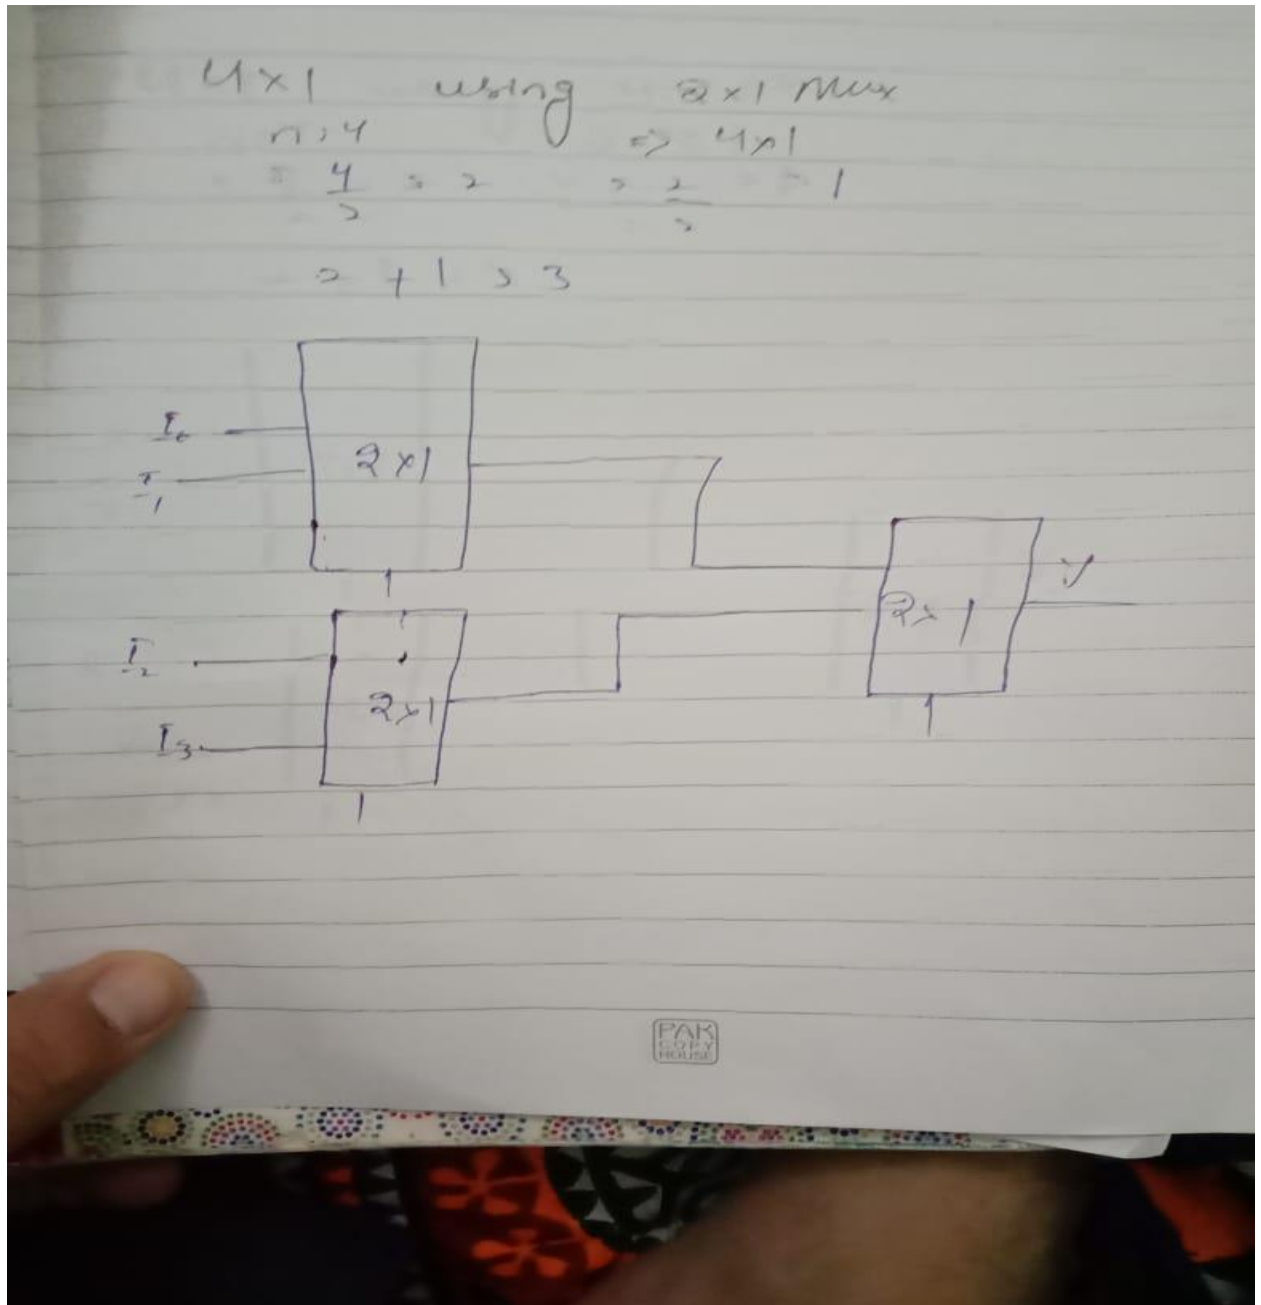 4×1 using 2×1 Mux
n = 4 => 4×1
= 4/2 = 2 = 2/2 = 1
= + 1 = 3
I0
2×1
I1
2×1
Y
I2
2×1
I3
PAK
COPY
HOUSE